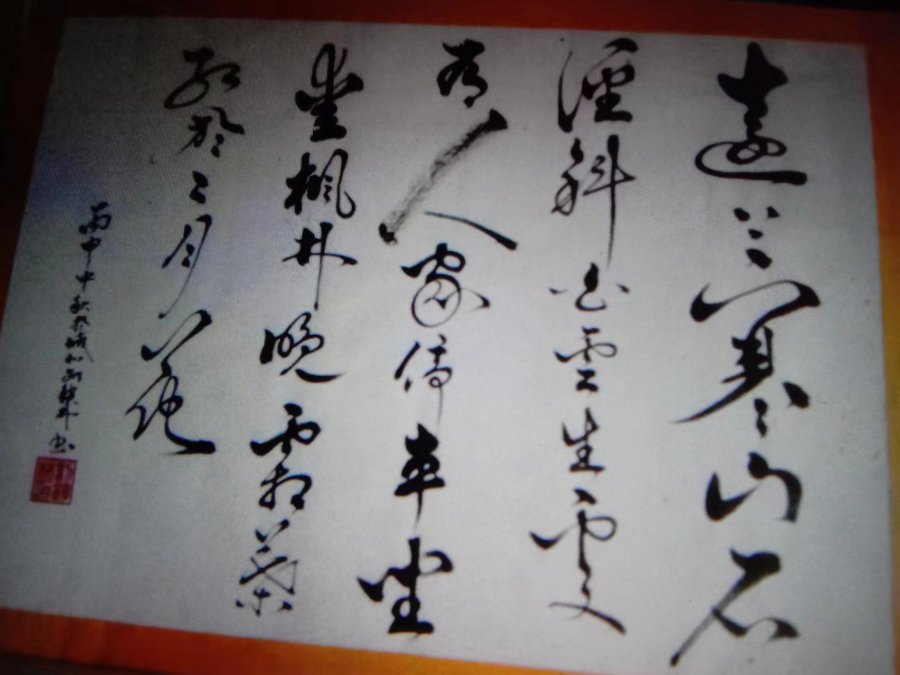 遠上寒山石
徑斜白雲生處
有人家停車坐
愛楓林晚霜葉
紅於二月花
丙申中秋於 书